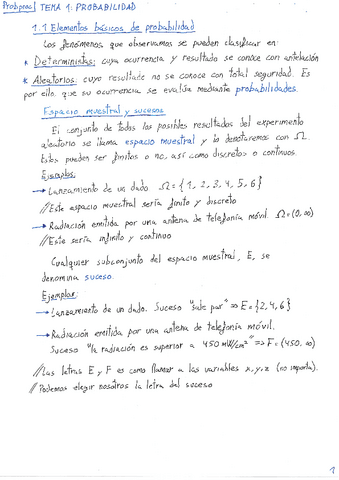 Probproc| TEMA 1: PROBABILIDAD
1.1 Elementos básicos de probabilidad
Los fenómenos que observamos se pueden clasificar en:
* Deterministas: cuya ocurrencia y resultado se conoce con antelación
* Aleatorios: cuyo resultado no se conoce con total seguridad. Es
por ello que su ocurrencia se evalúa mediante probabilidades.
Espacio muestral y sucesos
El conjunto de todos los posibles resultados del experimento
aleatorio se llama espacio muestral y lo denotaremos con Ω.
Estos pueden ser finitos o no, así como discretos o continuos.
Ejemplos:
→ Lanzamiento de un dado Ω = {1, 2, 3, 4, 5, 6}
//Este espacio muestral sería finito y discreto
→ Radiación emitida por una antena de telefonía móvil. Ω=(0, ∞)
//Este sería infinito y continuo
Cualquier subconjunto del espacio muestral, E, se
denomina suceso.
Ejemplos:
→ Lanzamiento de un dado. Suceso "sale par" => E = {2, 4, 6}
→ Radiación emitida por una antena de telefonía móvil.
Suceso "la radiación es superior a 450 mW/cm²" => F = (450, ∞)
//Las letras E y F es como llamar a las variables x, y, z (no importa).
//Podemos elegir nosotros la letra del suceso
1